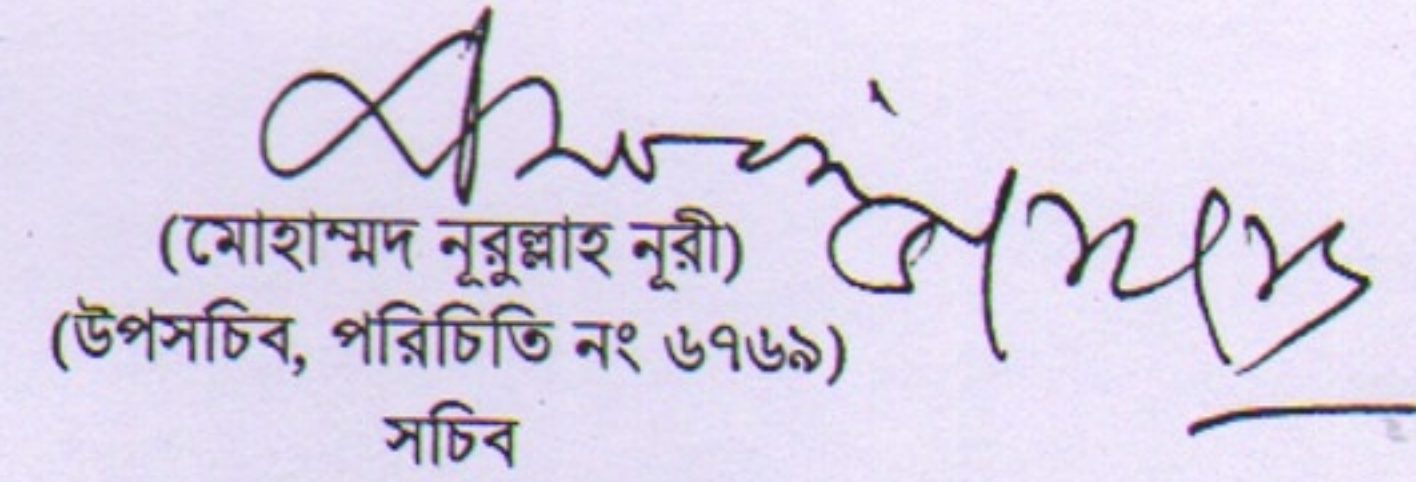 (মোহাম্মদ নূরুল্লাহ নূরী)
(উপসচিব, পরিচিতি নং ৬৭৬৯)
সচিব